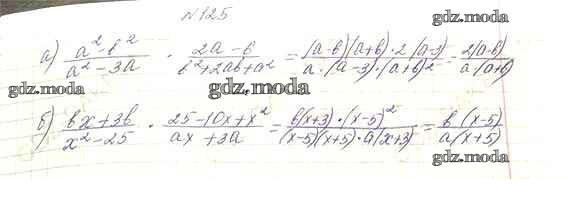 №125
gdz.moda
а) (a² - b²)/(a² - 3a) · (2a - 6)/(b² + 2ab + a²) = ((a-b)(a+b)·2(a-3))/(a·(a-3)·(a+b)²) = (2(a-b))/(a(a+b))
gdz.moda gdz.moda gdz.moda
б) (bx + 3b)/(x² - 25) · (25 - 10x + x²)/(ax + 3a) = (b(x+3)·(x-5)²)/((x-5)(x+5)·a(x+3)) = (b(x-5))/(a(x+5))
gdz.moda